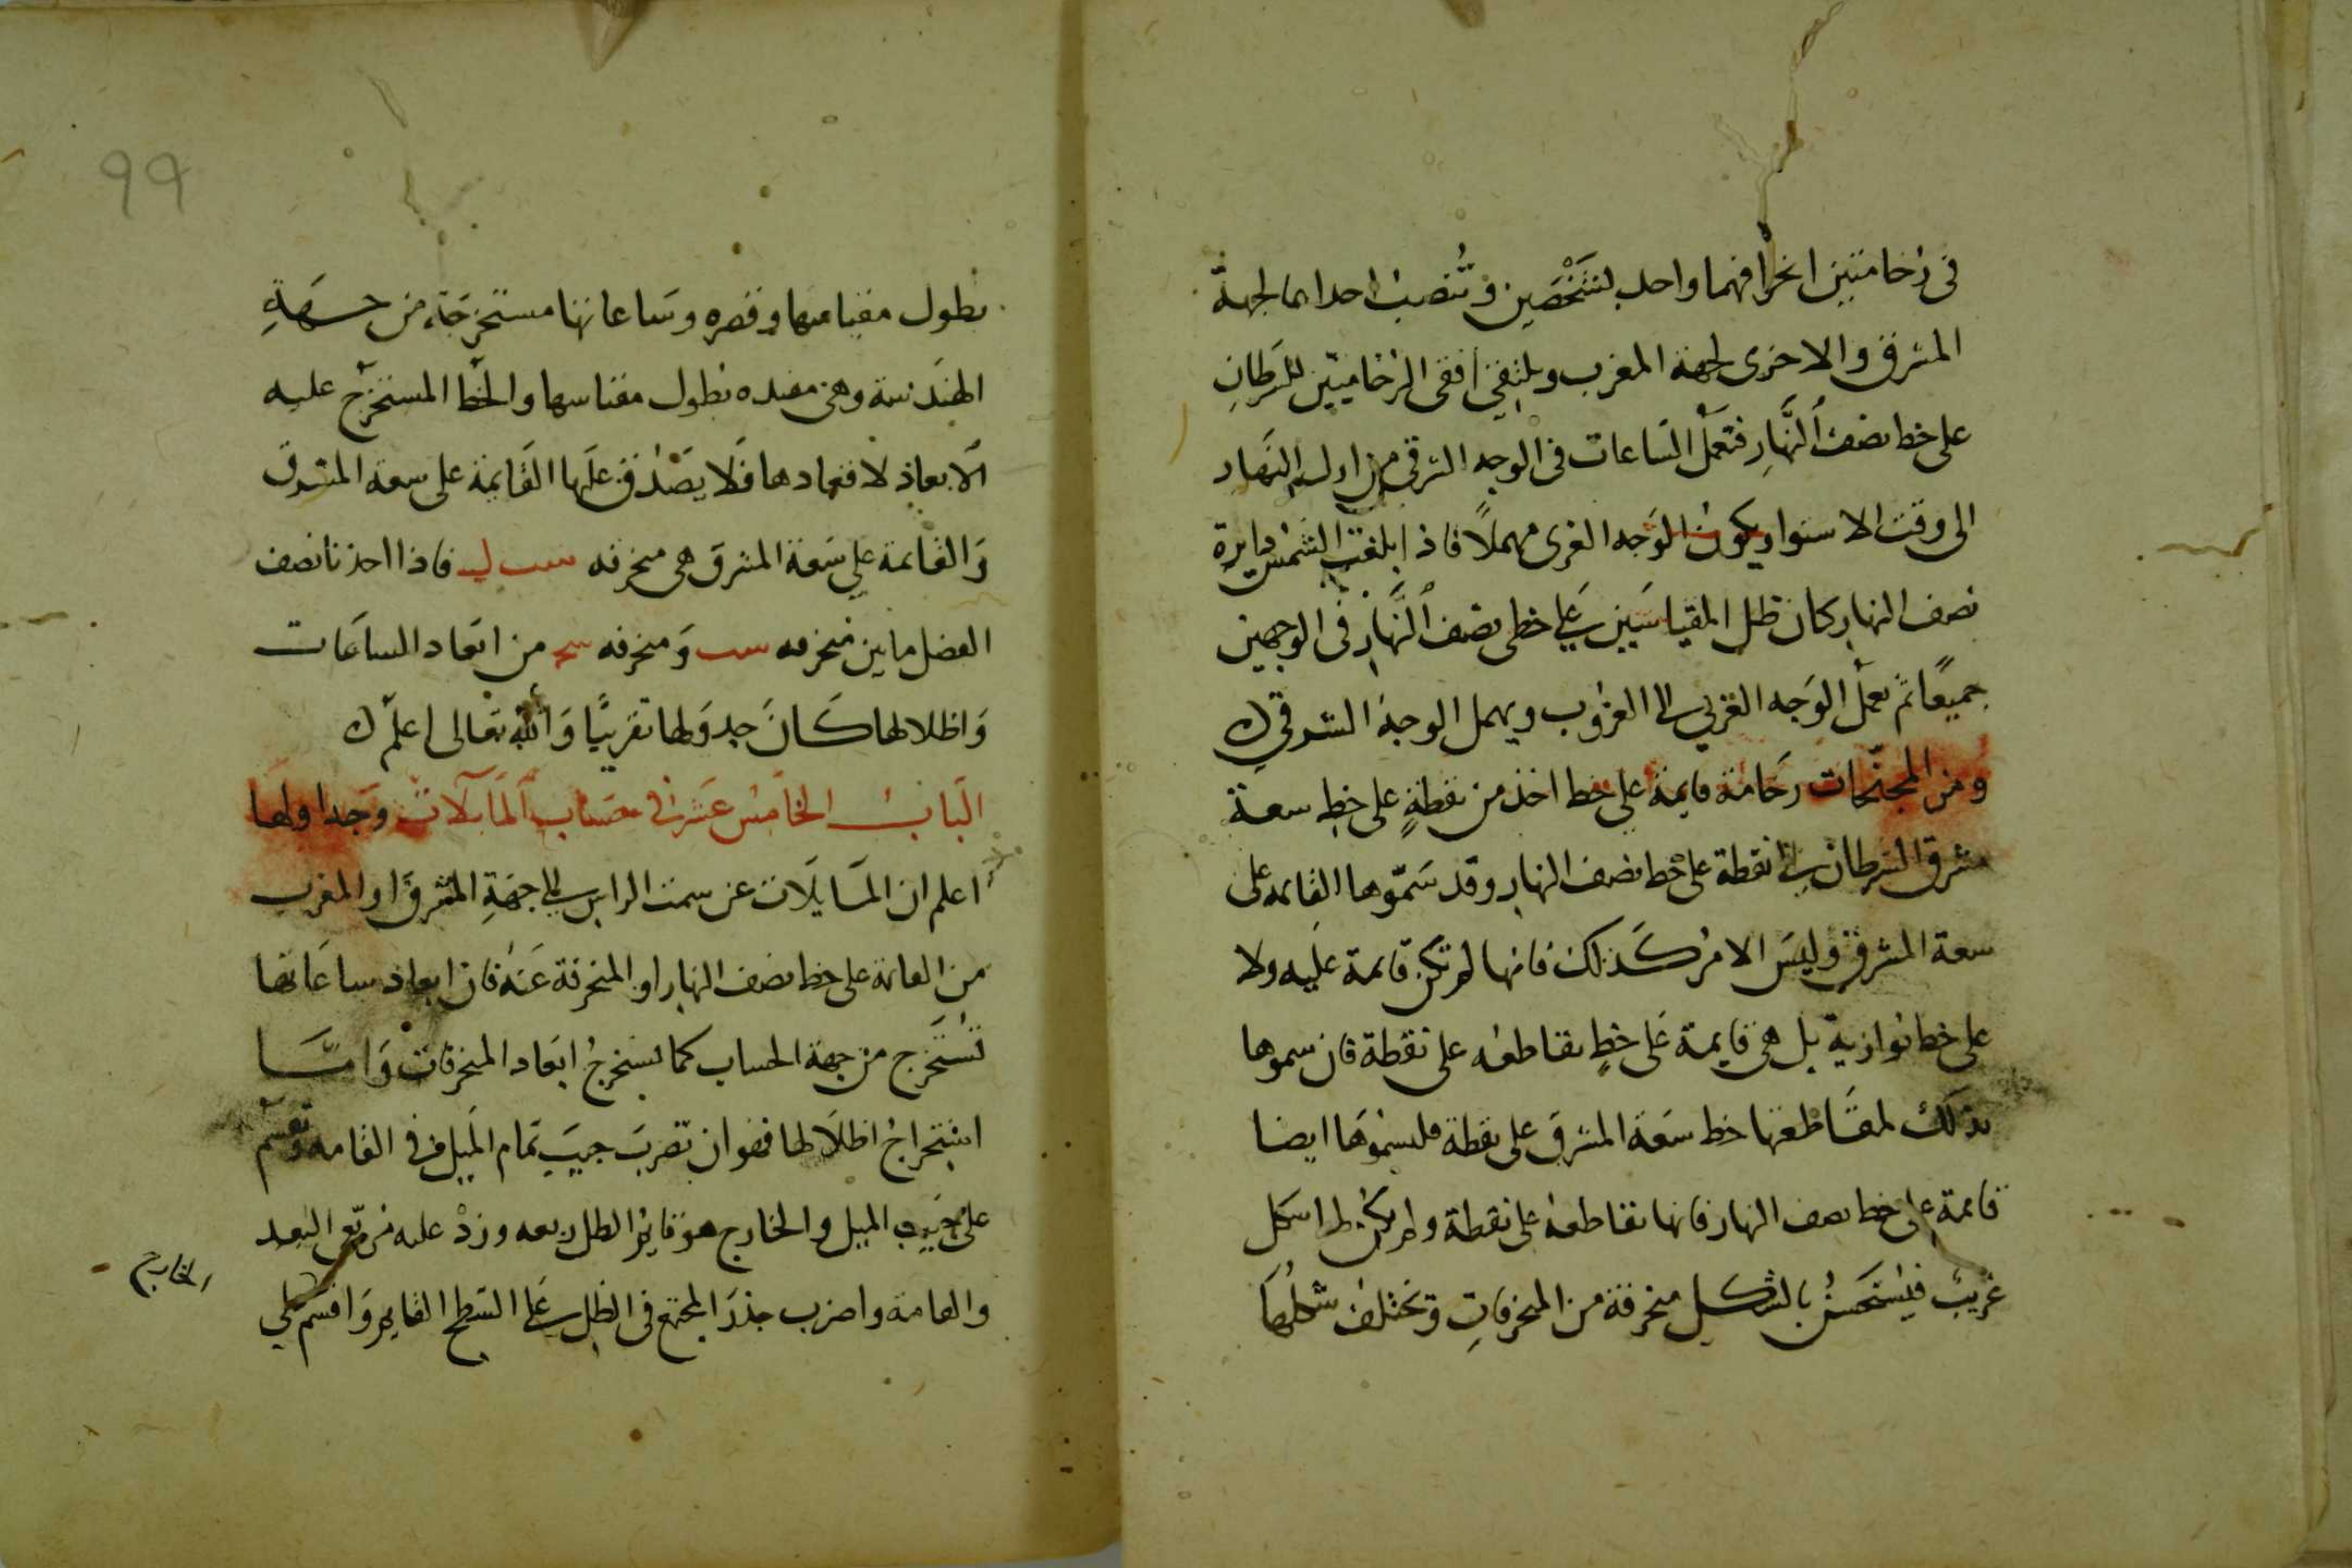 في رخامتين انحرافهما واحد لشخصين وتنصب احداهما لجهة
المشرق والاخرى لجهة المغرب ويلتقي افقي الرخامتين للسرطان
على خط نصف النهار فتعمل الساعات في الوجه الشرقي من اول النهار
الى وقت الاستوا ويكون الوجه الغربي مهملاً فاذا بلغت الشمس دايرة
نصف النهار كان ظل المقياسين على خطي نصف النهار في الوجهين
جميعًا ثم تعمل الوجه الغربي الى الغروب ويهمل الوجه الشرقي
ومن المجنحات رخامة قايمة على خط اخذ من نقطةٍ على خط سعة
مشرق السرطان الى نقطة على خط نصف النهار وقد سمّوها القايمه على
سعة المشرق وليس الامر كذلك فانها لم تكن قايمة عليه ولا
على خط توازيه بل هي قايمة على خطٍ تقاطعه على نقطة فان سموها
بذلك لمقاطعتها خط سعة المشرق على نقطة فليسموها ايضا
قايمة على خط نصف النهار فانها تقاطعه على نقطة ولم يكن لها شكل
غريب فيستحسن بالشكل منحرفة من المنحرفات وتختلف شكلها
بطول مقياسها وقصره وساعاتها مستخرجة من جهة
الهندسة وهي مقيده بطول مقياسها والخط المستخرج عليه
الابعاد لافقها دها فلا يصدق عليها القايمة على سعة المشرق
والقايمة على سعة المشرق هي منحرفه فاذا اخذنا نصف
الفضل ما بين منحرفه سب ومنحرفه سح من ابعاد الساعات
واظلالها كان جدولها تقريبًا والله تعالى اعلم
الباب الخامس عشر في حساب المايلات وجداولها
اعلم ان المايلات عن سمت الراس الى جهة المشرق او المغرب
من القايمة على خط نصف النهار او المنحرفة عنه فان ابعاد ساعاتها
تستخرج من جهة الحساب كما تستخرج ابعاد المنحرفات واما
استخراج اظلالها فهو ان تضرب جيب تمام الميل في القامه وتقسم
على جيب الميل والخارج هو قايم الظل ربعه وزد عليه مربّع البعد
الخارج
والقامة واضرب جذر المجتمع في الظل على السطح القايم واقسم على